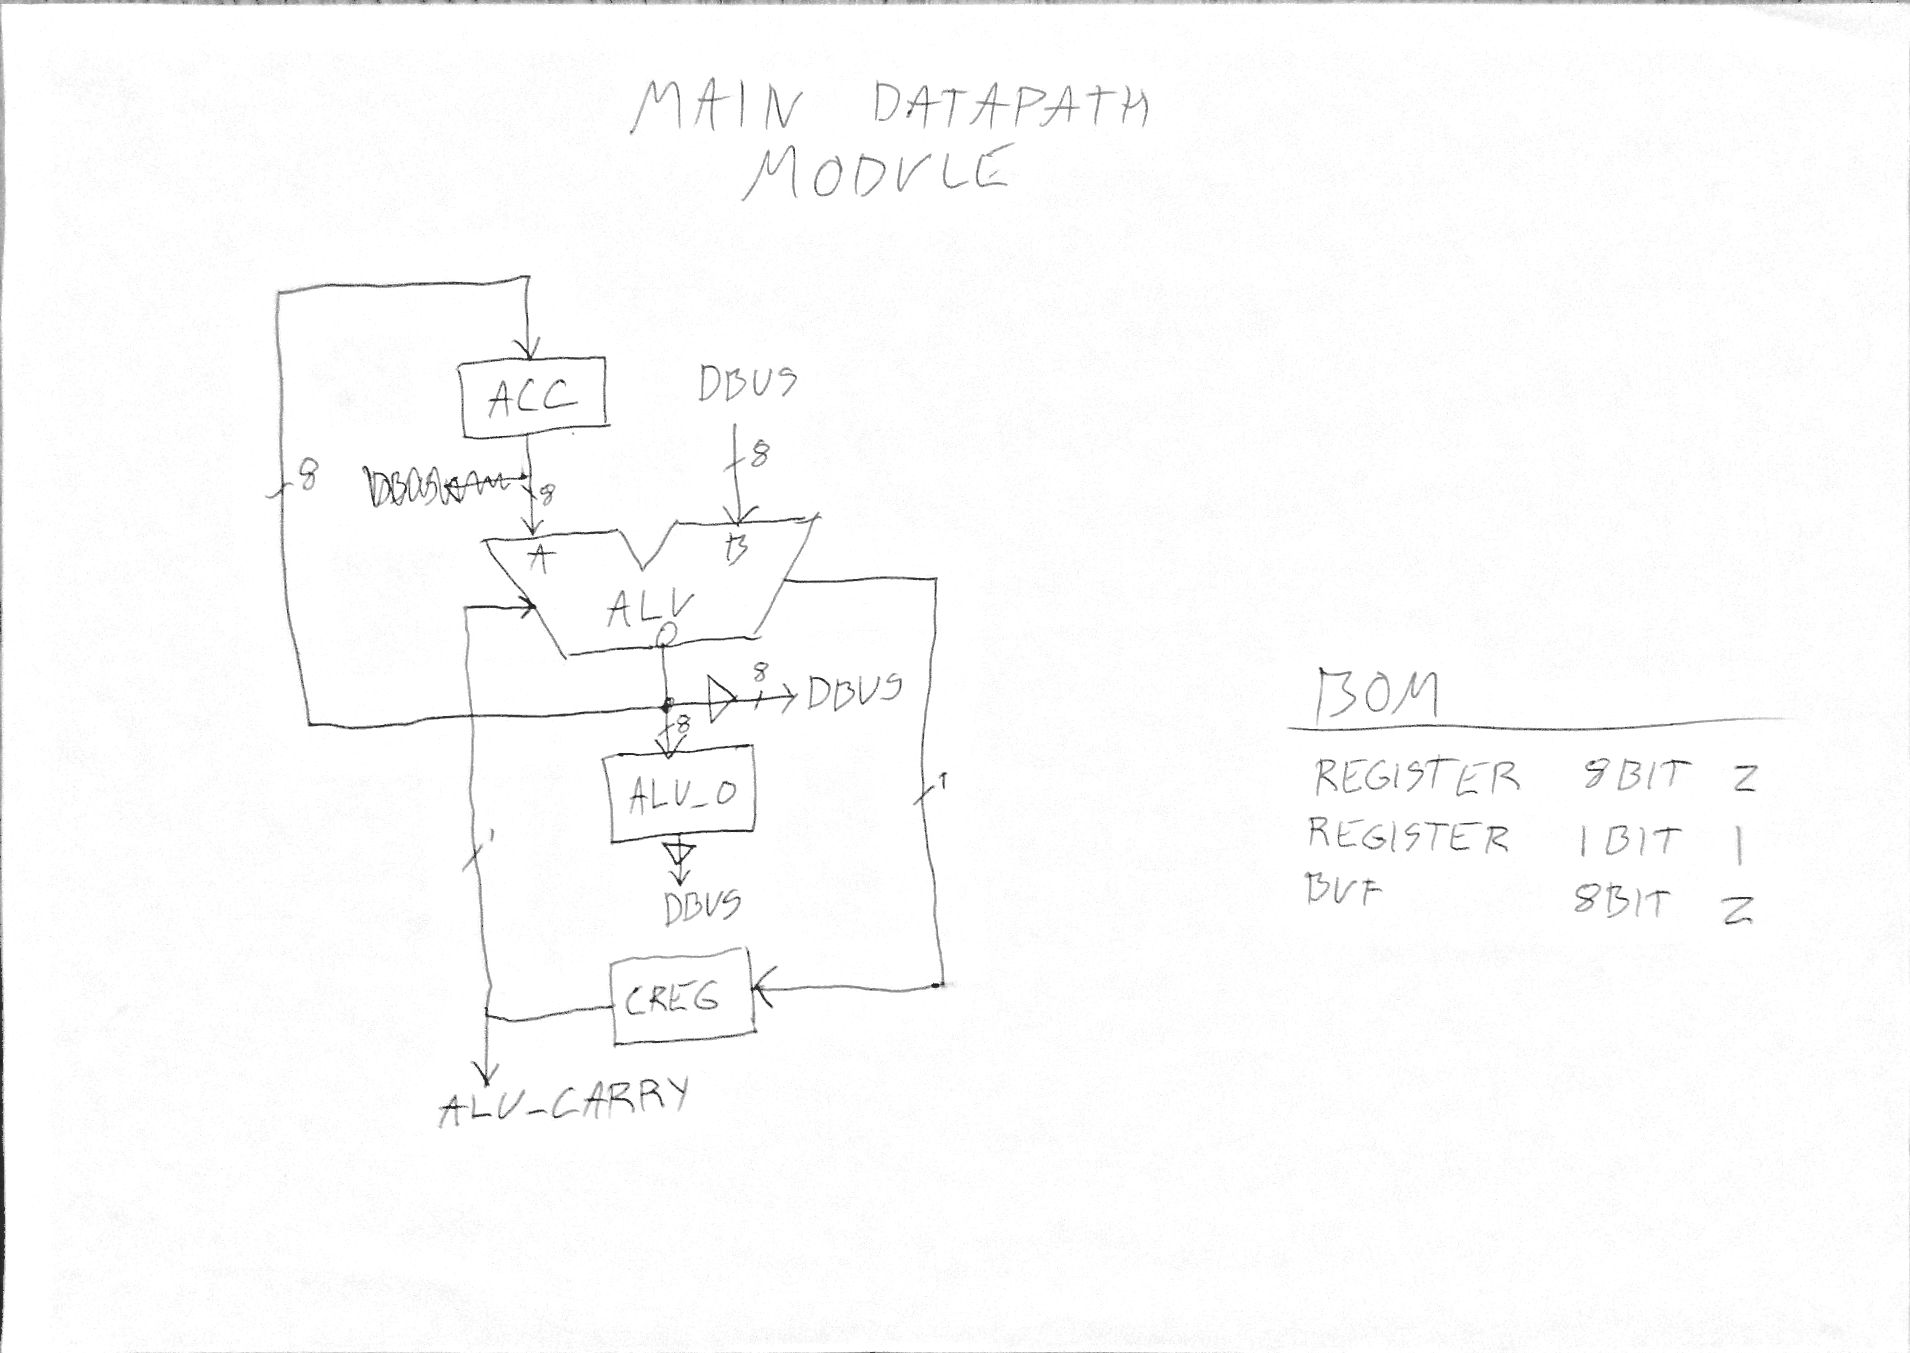 MAIN DATAPATH
MODULE
ACC
DBUS
8
8
8
A
B
ALU
O
8
DBUS
8
ALU_O
1
1
DBUS
CREG
ALU_CARRY
BOM
REGISTER 8BIT 2
REGISTER 1BIT 1
BUF 8BIT 2